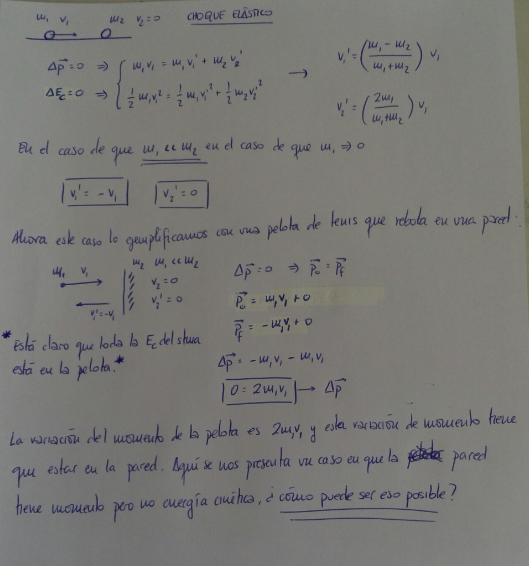 m₁ v₁ m₂ v₂=0 CHOQUE ELÁSTICO
Δp⃗=0 ⇒ { m₁v₁ = m₁v₁' + m₂v₂'
ΔEc=0 ⇒ { ½m₁v₁² = ½m₁v₁'² + ½m₂v₂'²
→ v₁' = (m₁-m₂ / m₁+m₂) v₁
v₂' = (2m₁ / m₁+m₂) v₁
En el caso de que m₁ << m₂ en el caso de que m₁ ⇒ 0
v₁' = -v₁ v₂' = 0
Ahora este caso lo ejemplificamos con una pelota de tenis que rebota en una pared.
m₁ v₁ m₂ m₁<<m₂
v₂=0
v₂'=0
v₁'=-v₁
*Está claro que toda la Ec del
está en la pelota.*
Δp⃗=0 ⇒ p⃗₀ = p⃗f
p⃗₀ = m₁v₁+0
p⃗f = -m₁v₁+0
Δp⃗ = -m₁v₁ - m₁v₁
0 = 2m₁v₁ → Δp⃗
La variación del momento de la pelota es 2m₁v₁ y esta variación de momento tiene
que estar en la pared. Aquí se nos presenta un caso en que la pared
tiene momento pero no energía cinética, ¿cómo puede ser eso posible?